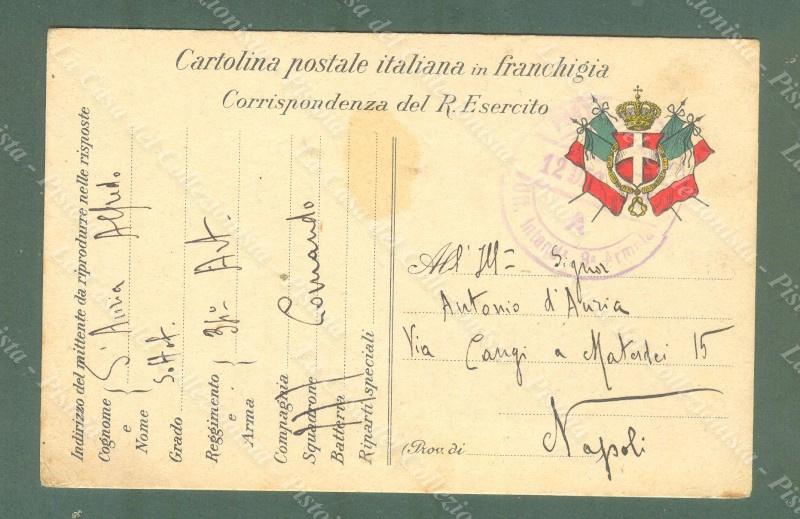 Cartolina postale italiana in franchigia
Corrispondenza del R. Esercito
Indirizzo del mittente da riprodurre nelle risposte
Cognome e Nome D'Auria Alfredo
Grado Sottot.
Reggimento e Arma Art.
Compagnia
Squadrone Comando
Batteria
Riparti speciali
12
A
Intend Armata
All' Ill= Signor
Antonio d'Auria
Via Cangi a Materdei 15
(Prov. di
Napoli
La Casa del Collezionista - Pistoia